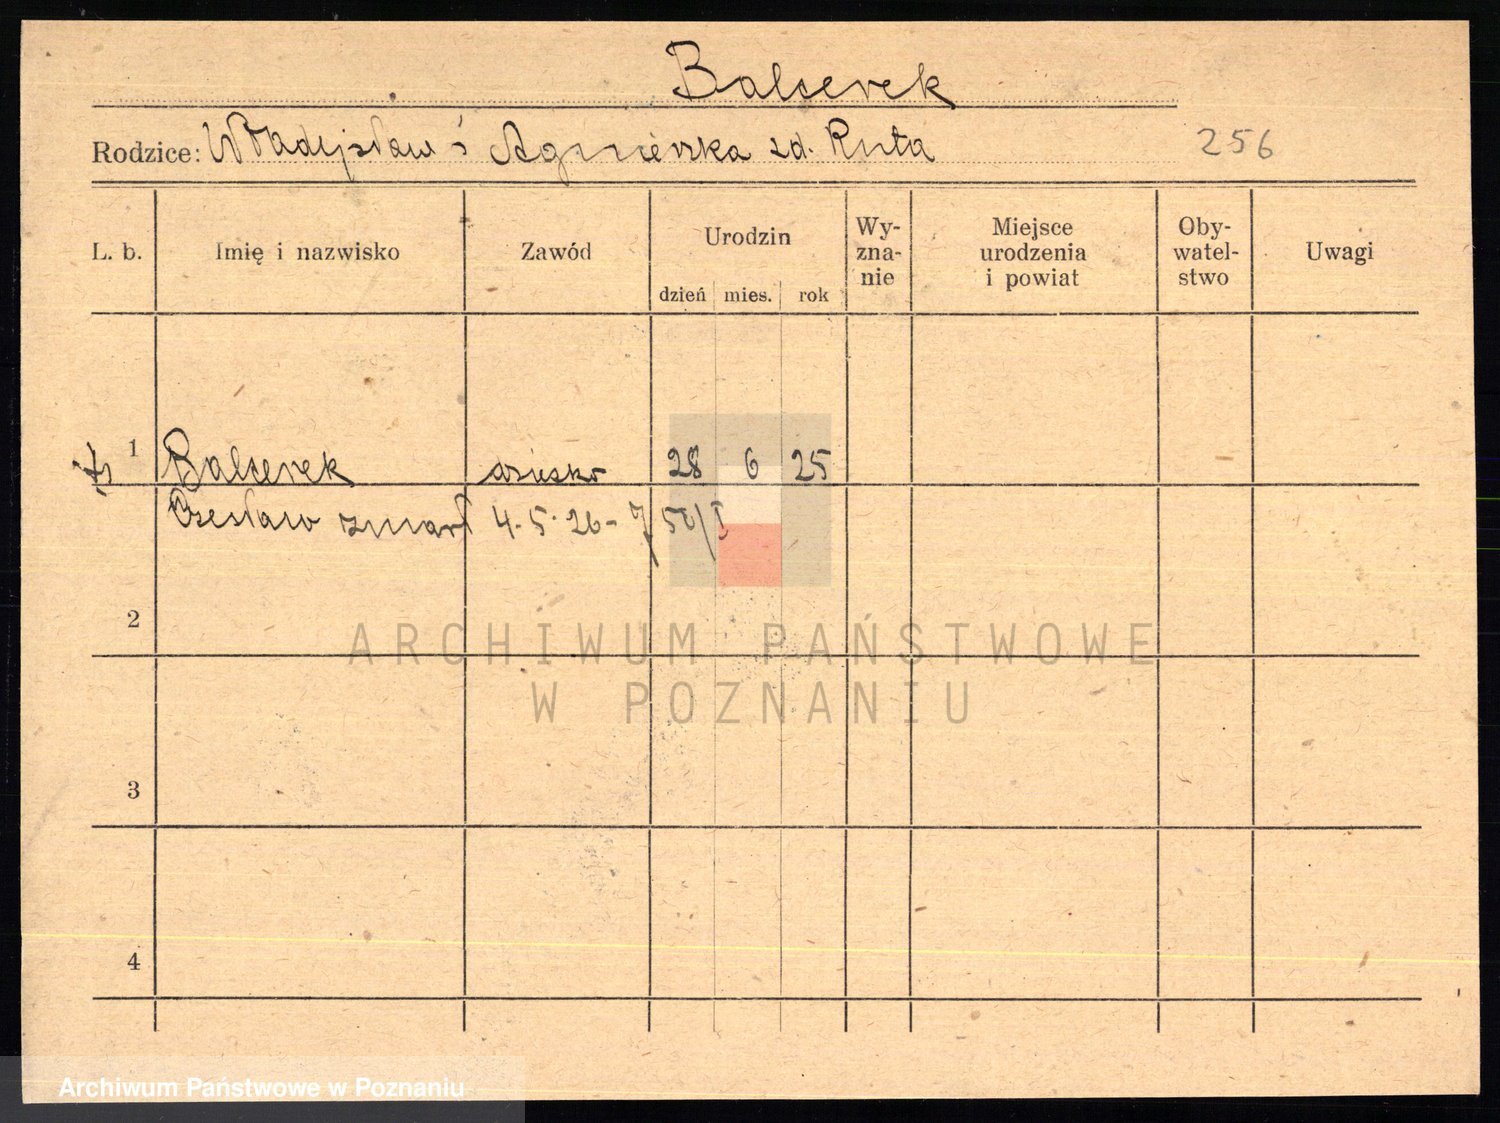 Balcerek
Rodzice: Władysław i Agnieszka zd. Ruta 256
L. b. Imię i nazwisko Zawód Urodzin Wy-zna-nie Miejsce urodzenia i powiat Oby-watel-stwo Uwagi
dzień mies. rok
1 Balcerek dziecko 28 6 25
Czesław zmarł 4.5.26
2
ARCHIWUM PAŃSTWOWE
W POZNANIU
3
4
Archiwum Państwowe w Poznaniu